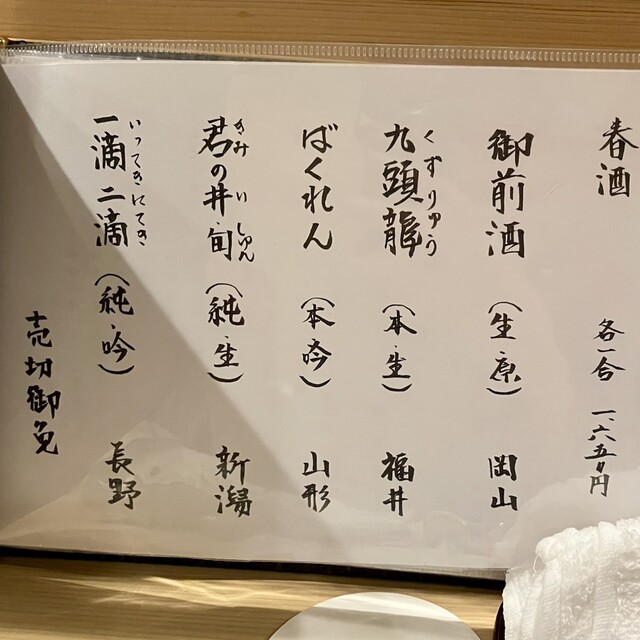 春酒 各一合 一、六五〇円
御前酒 (生・原) 岡山
九頭龍 (本・生) 福井
くずりゅう
ばくれん (本・吟) 山形
君の井 旬 (純・生) 新潟
きみ い しゅん
一滴二滴 (純・吟) 長野
いってきにてき
売切御免